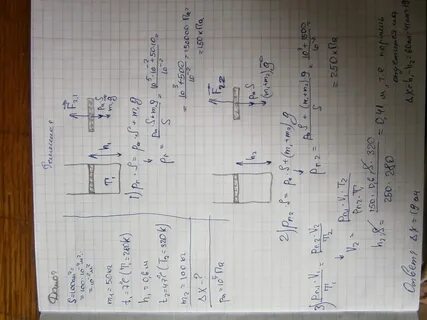 Дано:
S=100см²=
=100·10⁻⁴м²=
=10⁻²м²
m₁=50кг
t₁=7°C (T₁=280К)
h₁=0,6м
t₂=47°C (T₂=320К)
m₂=100кг
ΔX-?
p₀=10⁵Па
Решение:
T₁
h₁
F₂.₁
p₀S
m₁g
1) p₁·S=p₀·S+m₁g
p₁=(p₀S+m₁g)/S=(10⁵·10⁻²+50·10)/10⁻²=
=(10³+500)/10⁻²=150000Па=
=150кПа
h₂
F₂.₂
p₀S
(m₁+m₂)g
2) pп₂·S=p₀·S+(m₁+m₂)g
pп.₂=(p₀S+(m₁+m₂)g)/S=(10³+1500)/10⁻²=
=250кПа
3) (pп₁·V₁)/T₁=(pп.₂·V₂)/T₂
V₂=(pп₁·V₁·T₂)/(pп₂·T₁)
h₂S=(150·0,6·S·320)/(250·280)
h₂=0,41м, т.е. поршень
опустится на
ΔX=h₁-h₂=60см-41см=19
Ответ: ΔX=18см